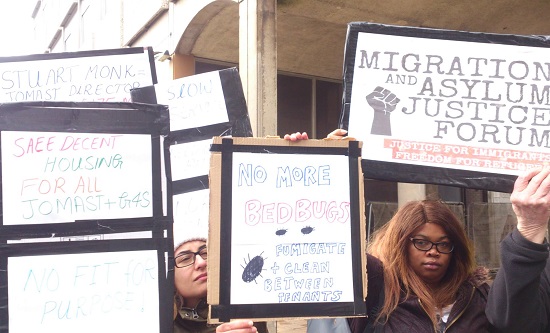 STUART MONK
JOMAST DIRECTOR
SAFE DECENT
HOUSING
FOR ALL
JOMAST + G4S
NO FIT FOR
PURPOSE
NO MORE
BEDBUGS
FUMIGATE
+ CLEAN
BETWEEN
TENANTS
MIGRATION
AND ASYLUM
JUSTICE
FORUM
JUSTICE FOR IMMIGRANTS
FREEDOM FOR